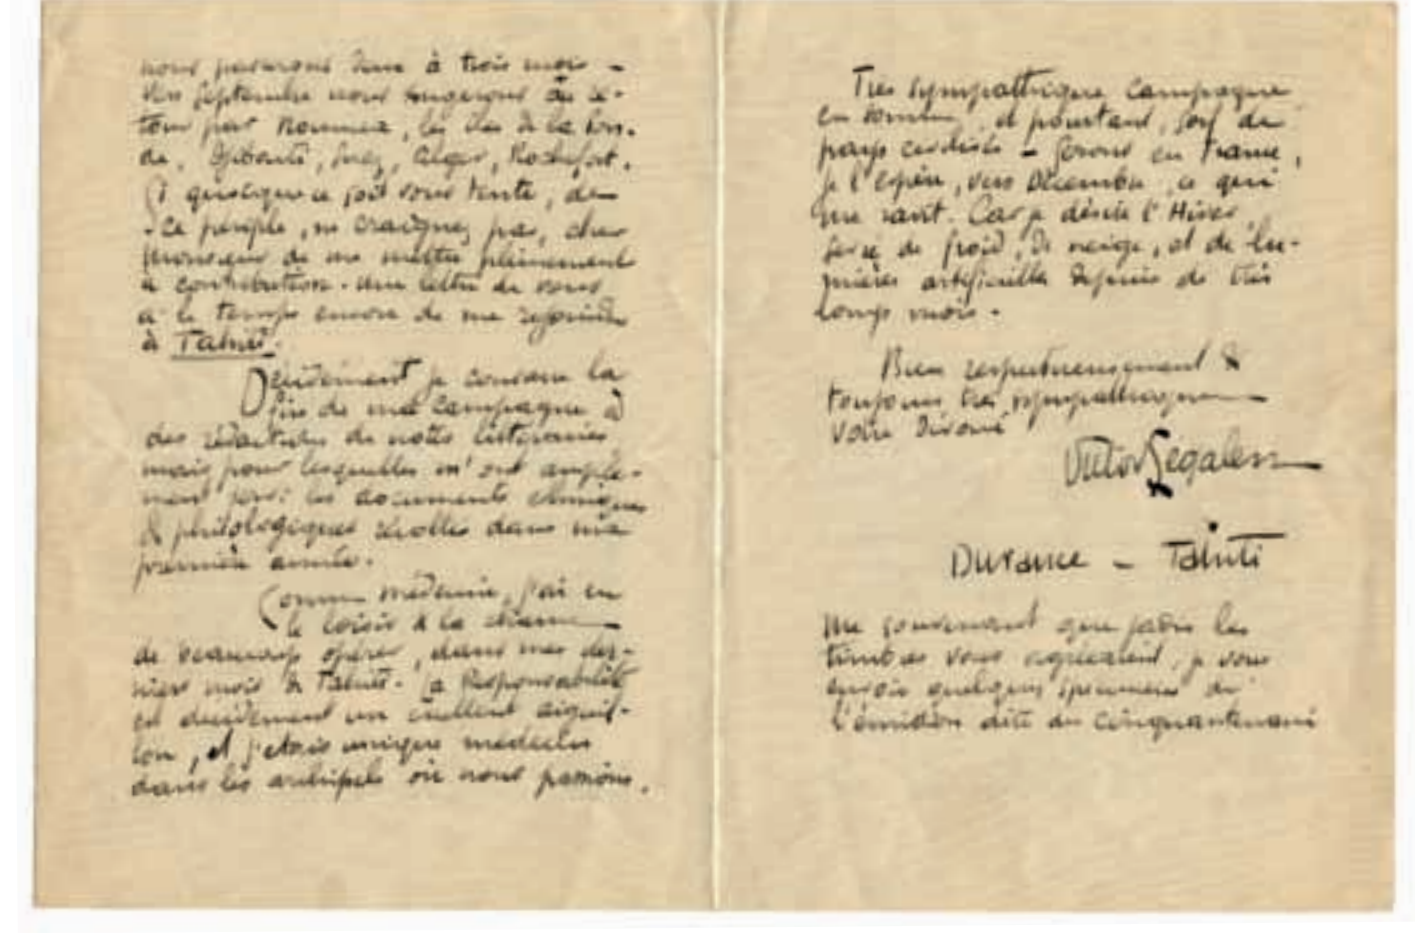 nous passerons deux à trois mois –
Vers Septembre nous songerons au re-
tour par Nouméa, les îles de la Son-
de, Djibouti, Suez, Alger, Rochefort.
Si quoique ce soit vous tente, de
ce périple, ne craignez pas, cher
Monsieur de me mettre pleinement
à contribution. Une lettre de vous
a le temps encore de me rejoindre
à Tahiti.
Décidément je consacre la
fin de ma campagne à
des rédactions de notes littéraires
mais pour lesquelles m'ont ample-
ment servi les documents ethniques
& philologiques récoltés dans ma
première année.
Comme médecine, j'ai eu
le loisir & la chance
de beaucoup opérer, dans mes der-
niers mois de Tahiti. La Responsabilité
est décidément un excellent aiguil-
lon, et j'étais unique médecin
dans les archipels où nous passions.
Très sympathique campagne
en somme, et pourtant, soif de
pays civilisés – Serons en France,
je l'espère, vers Décembre, ce qui
me ravit. Car je désire l'Hiver,
de froid, de neige, et de lu-
mières artificielles depuis de très
longs mois.
Bien respectueusement &
toujours très sympathiquement
Votre Dévoué
Victor Segalen
Durance – Tahiti
Me souvenant que jadis les
timbres vous agréaient, je vous
envoie quelques specimens de
l'émission dite du cinquantenaire